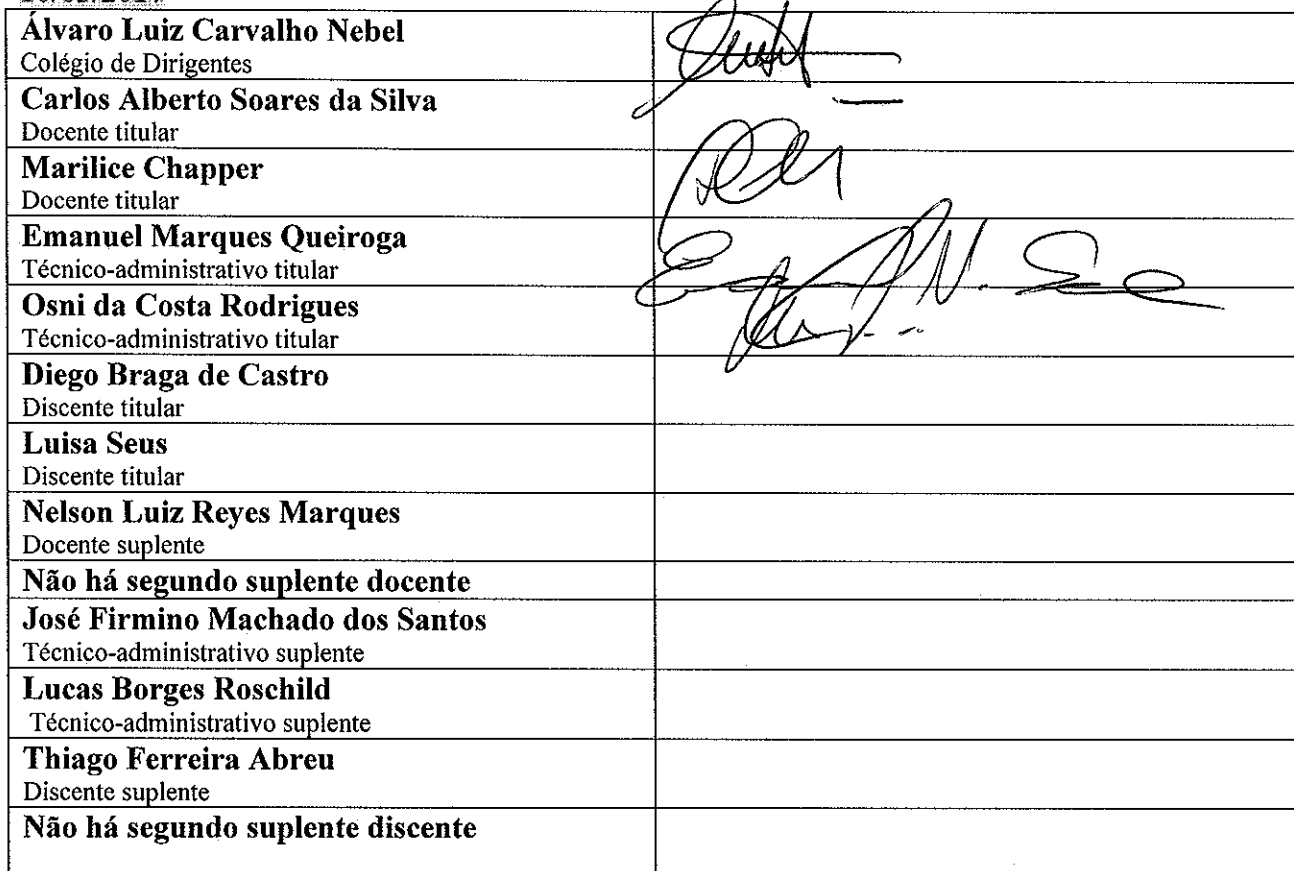 Álvaro Luiz Carvalho Nebel
Colégio de Dirigentes
Carlos Alberto Soares da Silva
Docente titular
Marilice Chapper
Docente titular
Emanuel Marques Queiroga
Técnico-administrativo titular
Osni da Costa Rodrigues
Técnico-administrativo titular
Diego Braga de Castro
Discente titular
Luisa Seus
Discente titular
Nelson Luiz Reyes Marques
Docente suplente
Não há segundo suplente docente
José Firmino Machado dos Santos
Técnico-administrativo suplente
Lucas Borges Roschild
Técnico-administrativo suplente
Thiago Ferreira Abreu
Discente suplente
Não há segundo suplente discente